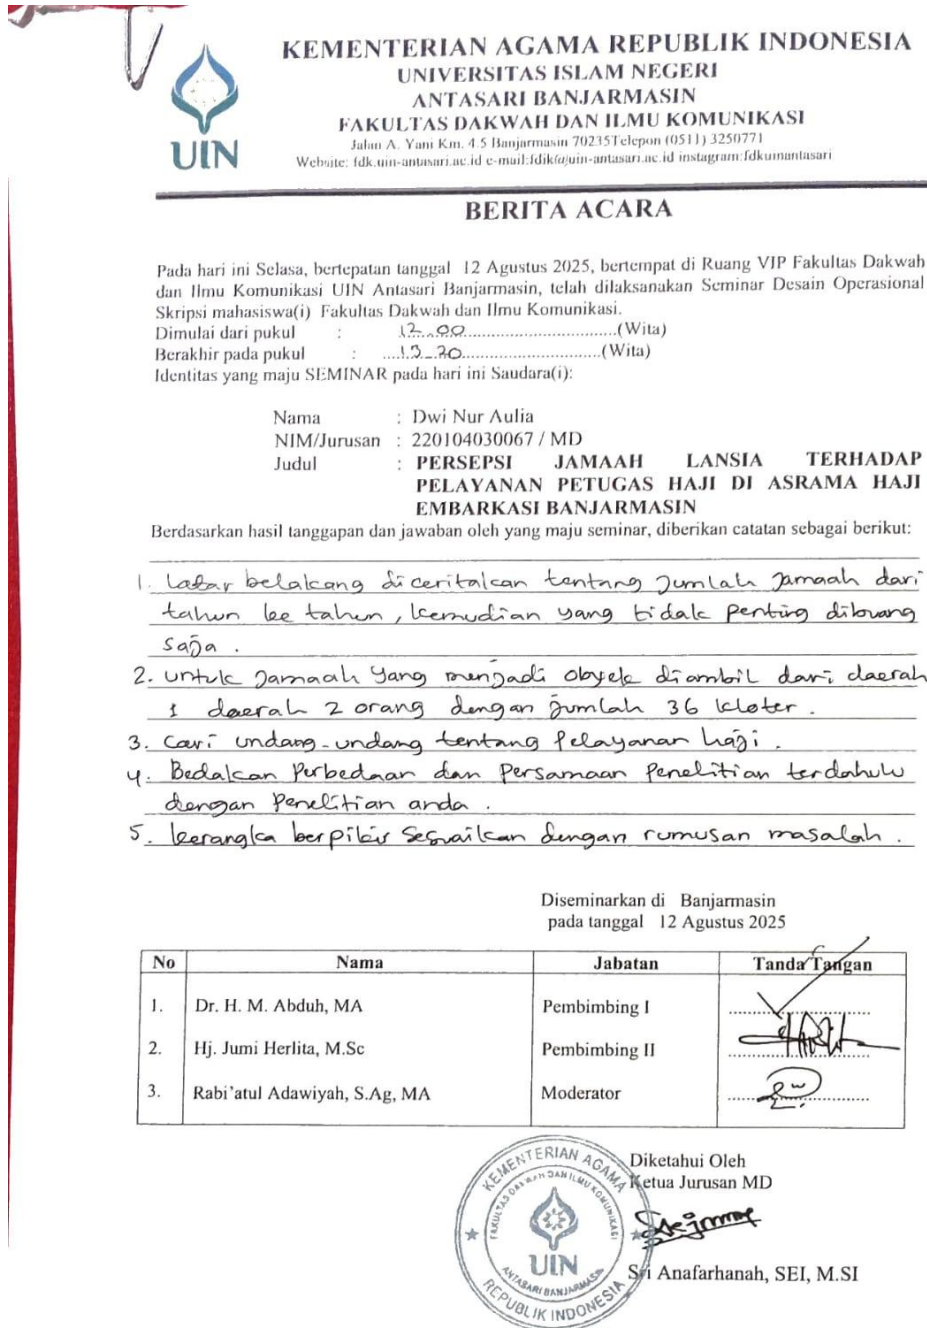 KEMENTERIAN AGAMA REPUBLIK INDONESIA
UNIVERSITAS ISLAM NEGERI
ANTASARI BANJARMASIN
FAKULTAS DAKWAH DAN ILMU KOMUNIKASI
Jalan A. Yani Km. 4.5 Banjarmasin 70235Telepon (0511) 3250771
Website: fdk.uin-antasari.ac.id e-mail:fdik@uin-antasari.ac.id instagram:fdkuinantasari
UIN
BERITA ACARA
Pada hari ini Selasa, bertepatan tanggal 12 Agustus 2025, bertempat di Ruang VIP Fakultas Dakwah
dan Ilmu Komunikasi UIN Antasari Banjarmasin, telah dilaksanakan Seminar Desain Operasional
Skripsi mahasiswa(i) Fakultas Dakwah dan Ilmu Komunikasi.
Dimulai dari pukul : 12.00 (Wita)
Berakhir pada pukul : 13.20 (Wita)
Identitas yang maju SEMINAR pada hari ini Saudara(i):
Nama : Dwi Nur Aulia
NIM/Jurusan : 220104030067 / MD
Judul : PERSEPSI JAMAAH LANSIA TERHADAP
PELAYANAN PETUGAS HAJI DI ASRAMA HAJI
EMBARKASI BANJARMASIN
Berdasarkan hasil tanggapan dan jawaban oleh yang maju seminar, diberikan catatan sebagai berikut:
1. Latar belakang diceritakan tentang jumlah jamaah dari
tahun ke tahun, kemudian yang tidak penting dibuang
saja.
2. untuk jamaah yang menjadi obyek diambil dari daerah
1 daerah 2 orang dengan jumlah 36 kloter.
3. Cari undang-undang tentang pelayanan haji.
4. Bedakan Perbedaan dan Persamaan Penelitian terdahulu
dengan Penelitian anda.
5. kerangka berpikir sesuaikan dengan rumusan masalah.
Diseminarkan di Banjarmasin
pada tanggal 12 Agustus 2025
No Nama Jabatan Tanda Tangan
1. Dr. H. M. Abduh, MA Pembimbing I
2. Hj. Jumi Herlita, M.Sc Pembimbing II
3. Rabi'atul Adawiyah, S.Ag, MA Moderator
Diketahui Oleh
Ketua Jurusan MD
Sri Anafarhanah, SEI, M.SI
KEMENTERIAN AGAMA
FAKULTAS DAKWAH DAN ILMU KOMUNIKASI
UIN
ANTASARI BANJARMASIN
REPUBLIK INDONESIA